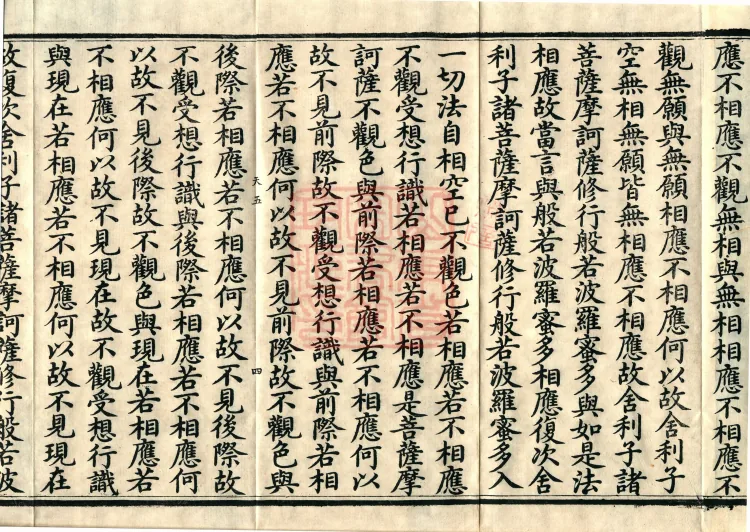 應不相應不觀無相與無相相應不相應不
觀無願與無願相應不相應何以故舍利子
空無相無願皆無相應不相應故舍利子諸
菩薩摩訶薩修行般若波羅蜜多與如是法
相應故當言與般若波羅蜜多相應復次舍
利子諸菩薩摩訶薩修行般若波羅蜜多入
一切法自相空已不觀色若相應若不相應
不觀受想行識若相應若不相應是菩薩摩
訶薩不觀色與前際若相應若不相應何以
故不見前際故不觀受想行識與前際若相
應若不相應何以故不見前際故不觀色與
天五
四
後際若相應若不相應何以故不見後際故
不觀受想行識與後際若相應若不相應何
以故不見後際故不觀色與現在若相應若
不相應何以故不見現在故不觀受想行識
與現在若相應若不相應何以故不見現在
故復次舍利子諸菩薩摩訶薩修行般若波